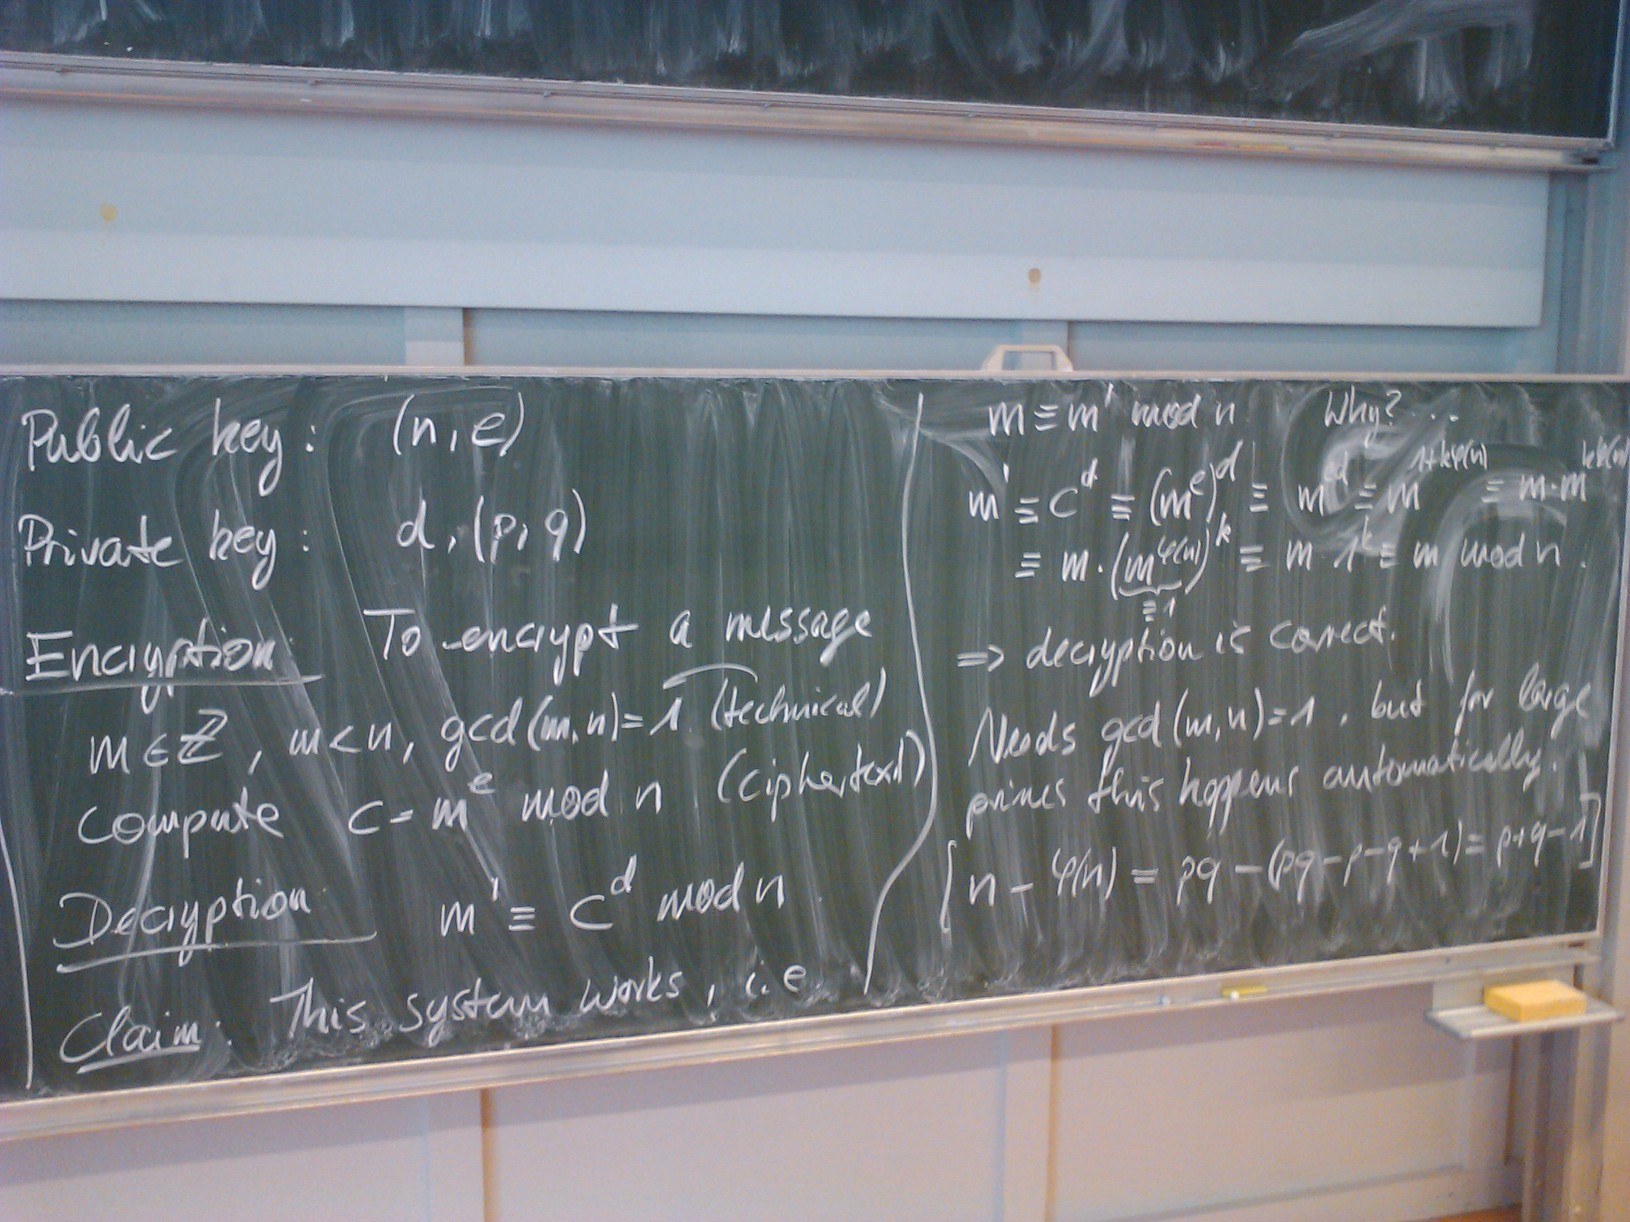 Public key: (n, e)
Private key: d, (p, q)
Encryption: To encrypt a message
m ∈ ℤ, m < n, gcd(m, n) = 1 (technical)
compute c = m^e mod n (ciphertext)
Decryption: m' ≡ c^d mod n
Claim: This system works, i.e
m ≡ m' mod n. Why? ...
m' ≡ c^d ≡ (m^e)^d ≡ m^{ed} ≡ m^{1+kφ(n)} ≡ m·m^{kφ(n)}
≡ m·(m^{φ(n)})^k ≡ m 1^k ≡ m mod n.
≡ 1
⇒ decryption is correct.
Needs gcd(m, n) = 1, but for large
primes this happens automatically.
[n − φ(n) = pq − (pq − p − q + 1) = p + q − 1]